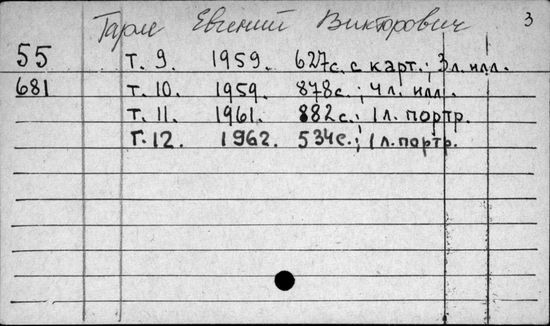 Тарле Евгений Викторович 3
55 т. 9. 1959. 627с. с карт.; 3 л. илл.
681 т. 10. 1959. 878с.; 4 л. илл.
т. 11. 1961. 882с.; 1 л. портр.
т. 12. 1962. 534с.; 1 л. портр.